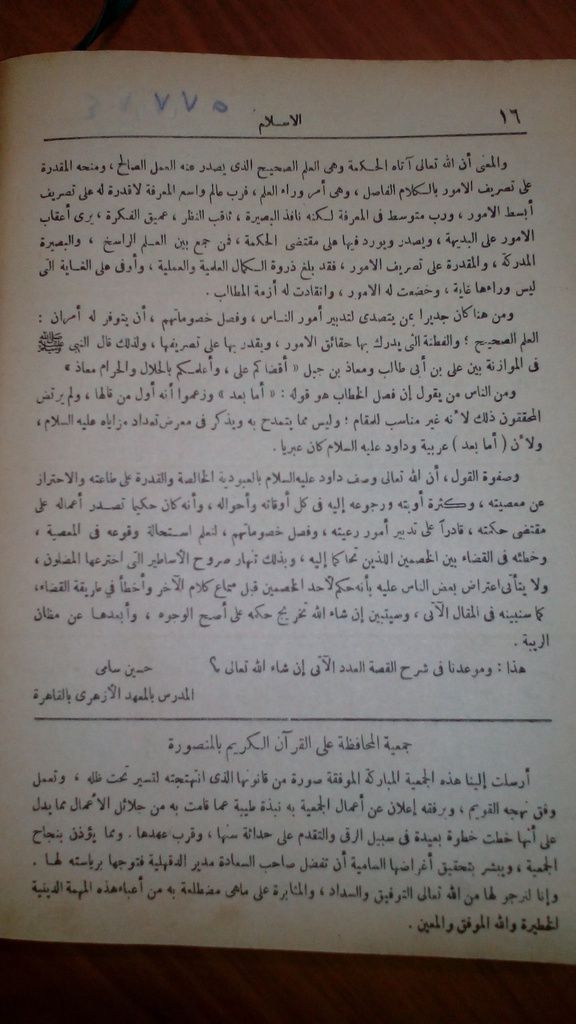 ٥ ٧ ٧
١٦
الاسلام
والمعنى أن الله تعالى آتاه الحكمة وهى العلم الصحيح الذى يصدر عنه العمل الصالح ، ومنحه المقدرة
على تصريف الامور بالكلام الفاصل ، وهى أمر وراء العلم ، فرب عالم واسع المعرفة لاقدرة له على تصريف
أبسط الامور ، ورب متوسط فى المعرفة لكنه نافذ البصيرة ، ثاقب النظر ، عميق الفكرة ، يرى أعقاب
الامور على البديهة ، ويصدر ويورد فيها على مقتضى الحكمة ، فمن جمع بين العلم الراسخ ، والبصيرة
المدركة ، والمقدرة على تصريف الامور ، فقد بلغ ذروة الكمال العلمية والعملية ، وأوفى على الغاية التى
ليس وراءها غاية ، وخضعت له الامور ، وانقادت له أزمة المطالب .
ومن هنا كان جديرا بمن يتصدى لتدبير أمور الناس ، وفصل خصوماتهم ، أن يتوفر له أمران :
العلم الصحيح ؛ والفطنة التى يدرك بها حقائق الامور ، ويقدر بها على تصريفها ، ولذلك قال النبى ﷺ
فى الموازنة بين على بن أبى طالب ومعاذ بن جبل « أقضاكم على ، وأعلمكم بالحلال والحرام معاذ »
ومن الناس من يقول إن فصل الخطاب هو قوله : « أما بعد » وزعموا أنه أول من قالها ، ولم يرتض
المحققون ذلك لأنه غير مناسب للمقام ؛ وليس مما يتمدح به ويذكر فى معرض تعداد مزاياه عليه السلام ،
ولأن ( أما بعد ) عربية وداود عليه السلام كان عبريا .
وصفوة القول ، أن الله تعالى وصف داود عليه السلام بالعبودية الخالصة والقدرة على طاعته والاحتراز
عن معصيته ، وكثرة أوبته ورجوعه إليه فى كل أوقاته وأحواله ، وأنه كان حكيما تصدر أعماله على
مقتضى حكمته ، قادراً على تدبير أمور رعيته ، وفصل خصوماتهم ، لنعلم استحالة وقوعه فى المعصية ،
وخطائه فى القضاء بين الخصمين اللذين تحاكما إليه ، وبذلك تنهار صروح الأساطير التى اخترعها المضلون ،
ولا يتأتى اعتراض بعض الناس عليه بأنه حكم لأحد الخصمين قبل سماع كلام الآخر وأخطأ فى طريقة القضاء ،
كما سنبينه فى المقال الآتى ، وسيتبين إن شاء الله تخريج حكمه على أصح الوجوه ، وأبعدها عن مظان
الريبة .
هذا : وموعدنا فى شرح القصة العدد الآتى إن شاء الله تعالى ؟
حسين سامى
المدرس بالمعهد الأزهرى بالقاهرة
جمعية المحافظة على القرآن الكريم بالمنصورة
أرسلت إلينا هذه الجمعية المباركة الموفقة صورة من قانونها الذى انتهجته لتسير تحت ظله ، وتعمل
وفق نهجه القويم ، وبرفقه إعلان عن أعمال الجمعية به نبذة طيبة عما قامت به من جلائل الأعمال مما يدل
على أنها خطت خطوة بعيدة فى سبيل الرقى والتقدم على حداثة سنها ، وقرب عهدها . ومما يؤذن بنجاح
الجمعية ، ويبشر بتحقيق أغراضها السامية أن تفضل صاحب السعادة مدير الدقهلية فتوجها برياسته لها .
وإنا لنرجو لها من الله تعالى التوفيق والسداد ، والمثابرة على ماهى مضطلعة به من أعباء هذه المهمة الدينية
الخطيرة والله الموفق والمعين .